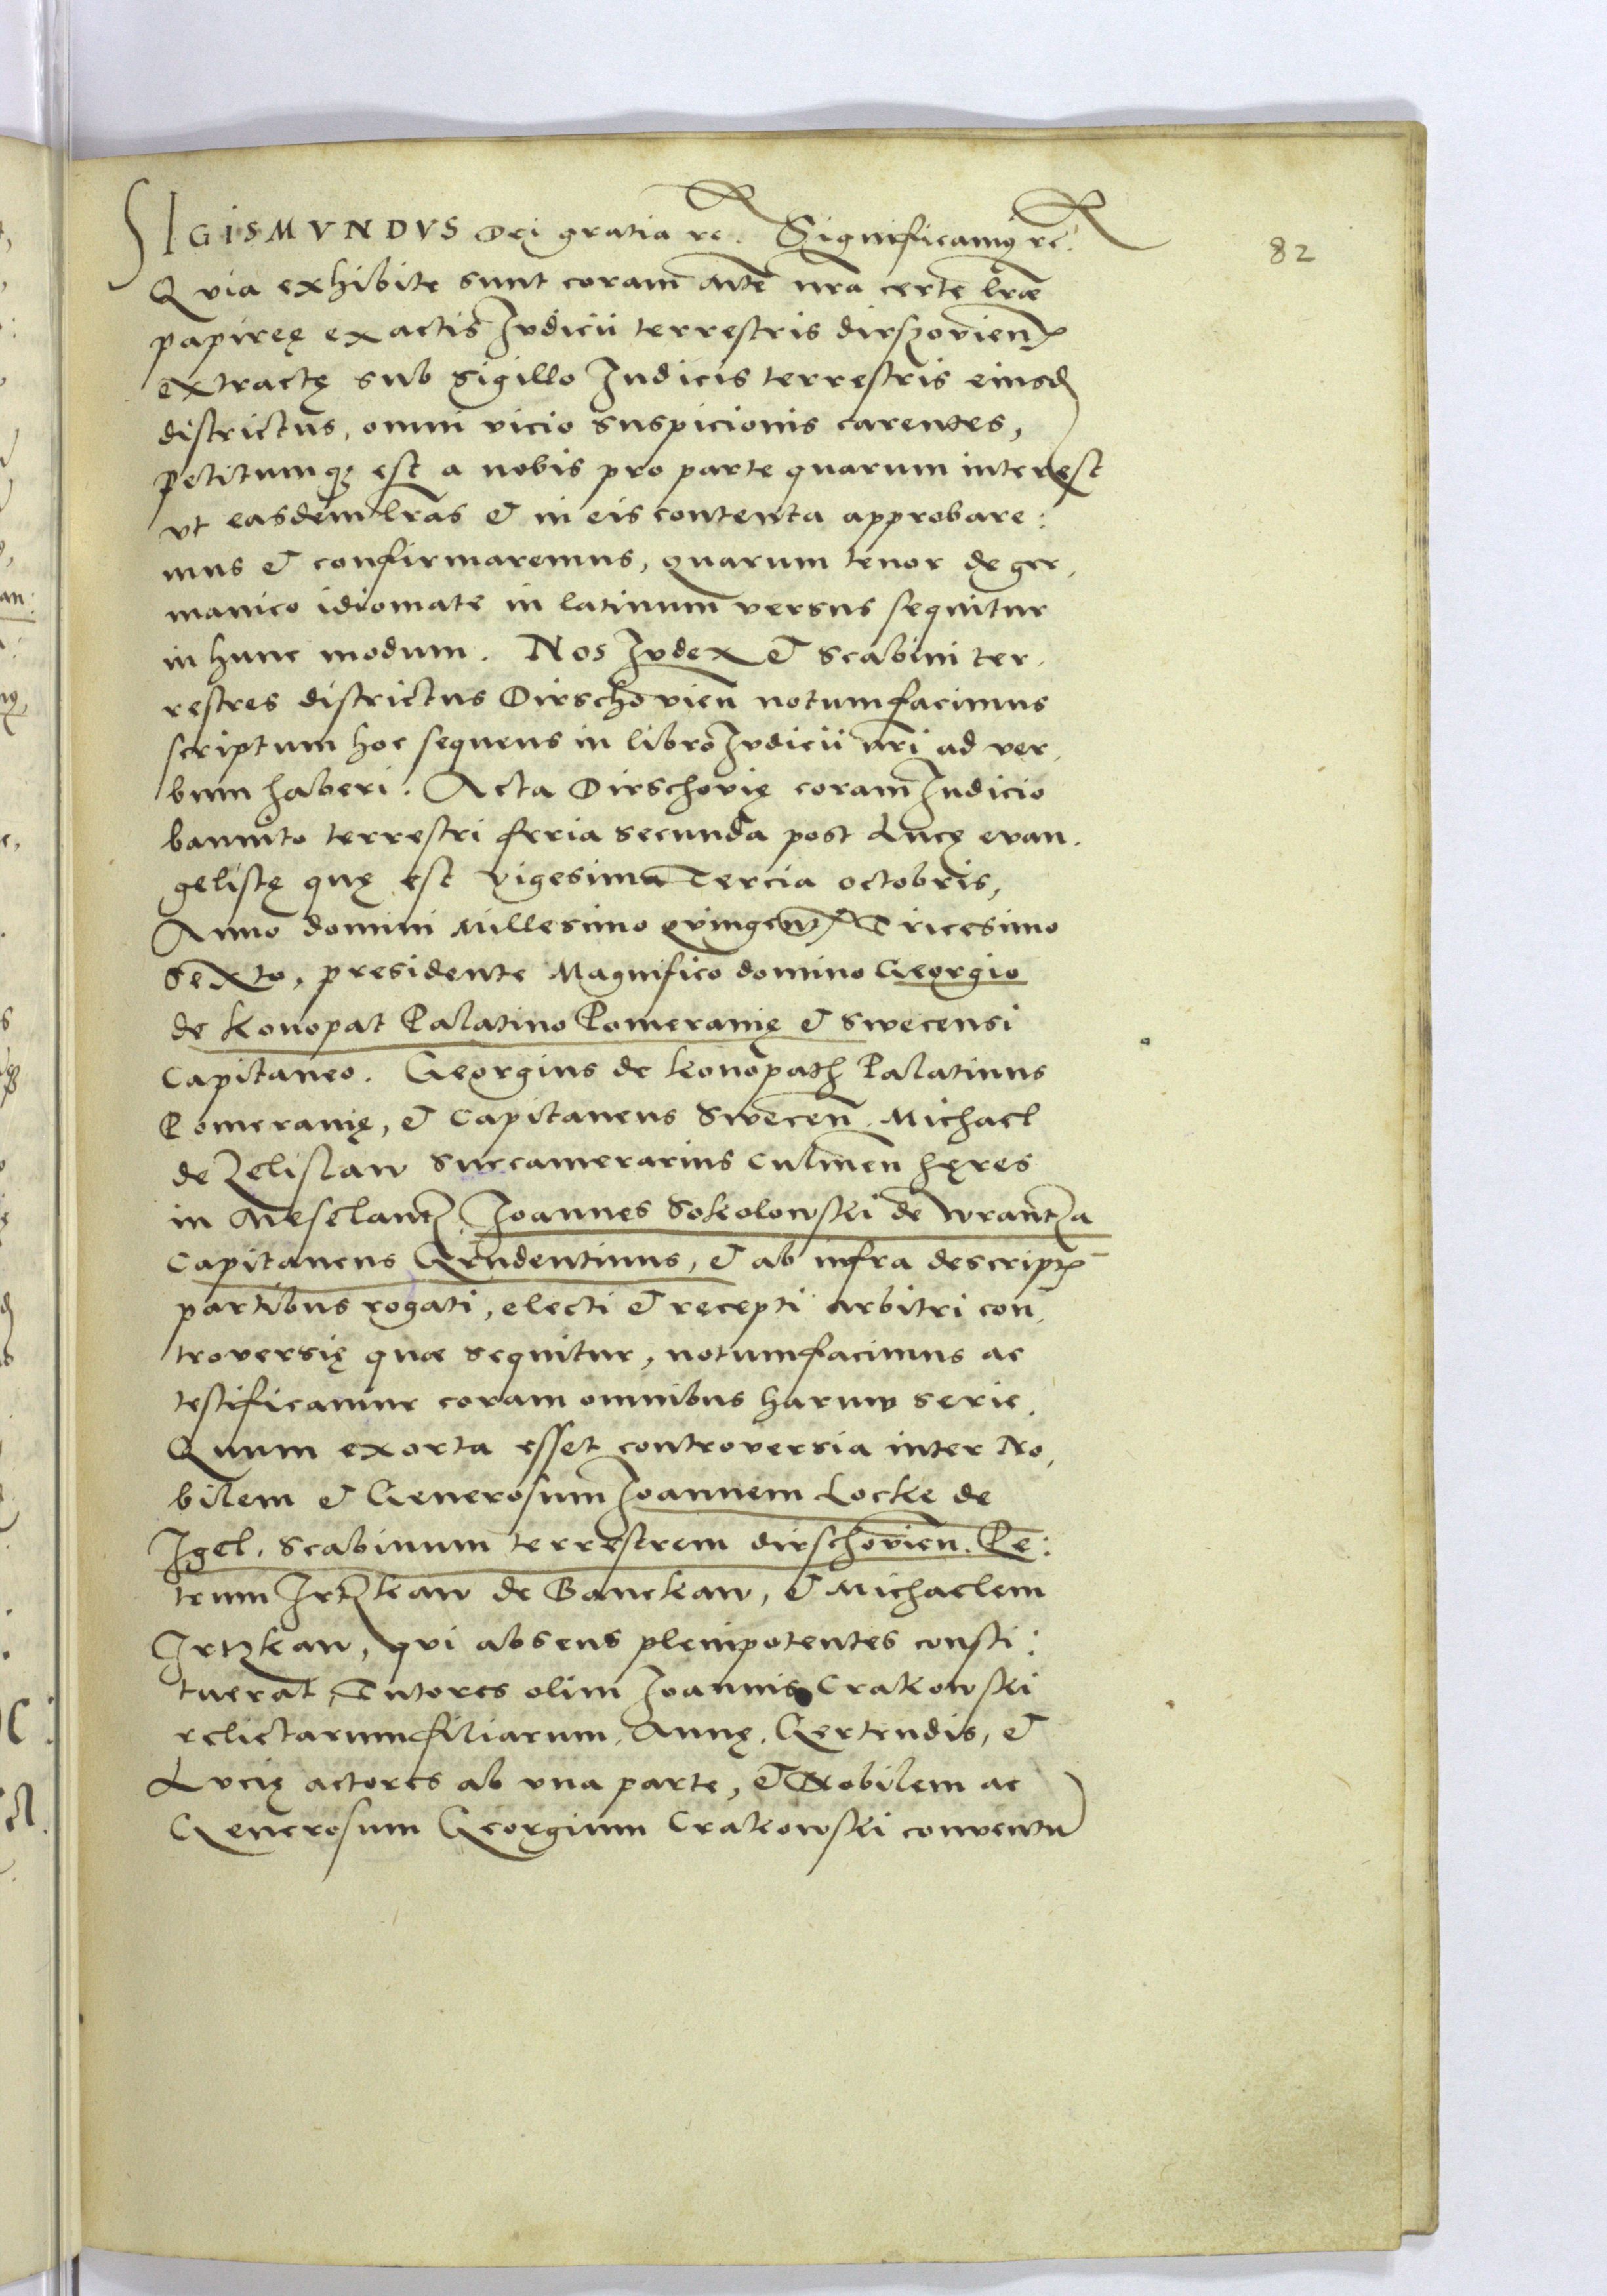 SIGISMVNDVS Dei gratia rc. Significamꝰ rc.
82
Quia exhibite sunt coram Mte nra certe lræ
papireę ex actis Judicii terrestris dirszovien
extractę sub sigillo Judicis terrestris eiusd
districtus, omni vicio suspicionis carentes,
petitumqȝ est a nobis pro parte quarum interest
vt easdem lras & in eis contenta approbare:
mus & confirmaremus, quarum tenor de ger,
manico idiomate in latinum versus sequitur
in hunc modum. Nos Judex & Scabini ter,
restres districtus Dirschovien notumfacimus
scriptum hoc sequens in libro Judicii nri ad ver,
bum haberi. Acta Dirschovię coram Judicio
bannito terrestri feria secunda post Lucę evan.
gelistę quę est vigesima Tercia octobris,
Anno domini Millesimo quingent Tricesimo
Sexto, presidente Magnifico domino Georgio
de Konopat Palatino Pomeranię & Swecensi
Capitaneo. Georgius de Konopath Palatinus
Pomeranię, & Capitaneus Swecen. Michael
de Zelislaw Succamerarius Culmen hęres
in Meselantz, Joannes Sokolowski de Wrantza
Capitaneus Grudentinus, & ab infra descript
partibus rogati, electi & recepti arbitri con,
troversię quæ sequitur, notumfacimus ac
testificamur coram omnibus harum serie.
Quum exorta esset controversia inter No,
bilem & Generosum Joannem Locke de
Jgel, Scabinum terrestrem dirschovien. Pe:
trum Jrtzkaw de Banckaw, & Michaelem
Jrtzkaw, qui absens plenipotentes consti:
tuerat, Tutores olim Joannis Crakowski
relictarum filiarum, Annę, Gertrudis, &
Lucię actores ab vna parte, & Nobilem ac
Generosum Georgium Crakowski conventu